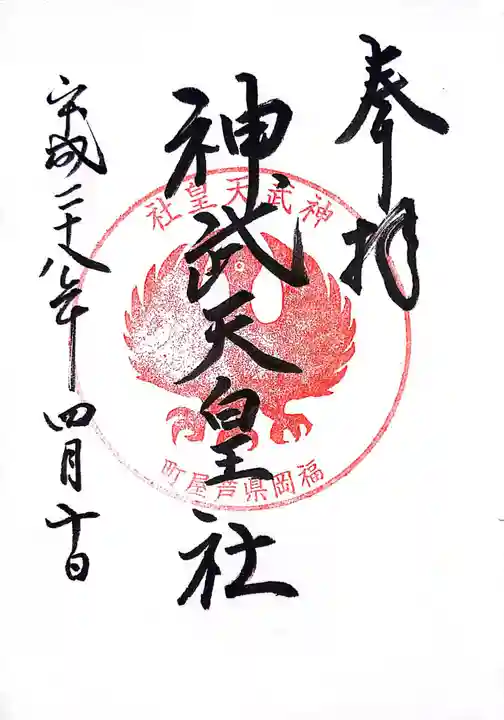 奉拝
神武天皇社
平成二十八年四月十日
神武天皇社
福岡県芦屋町